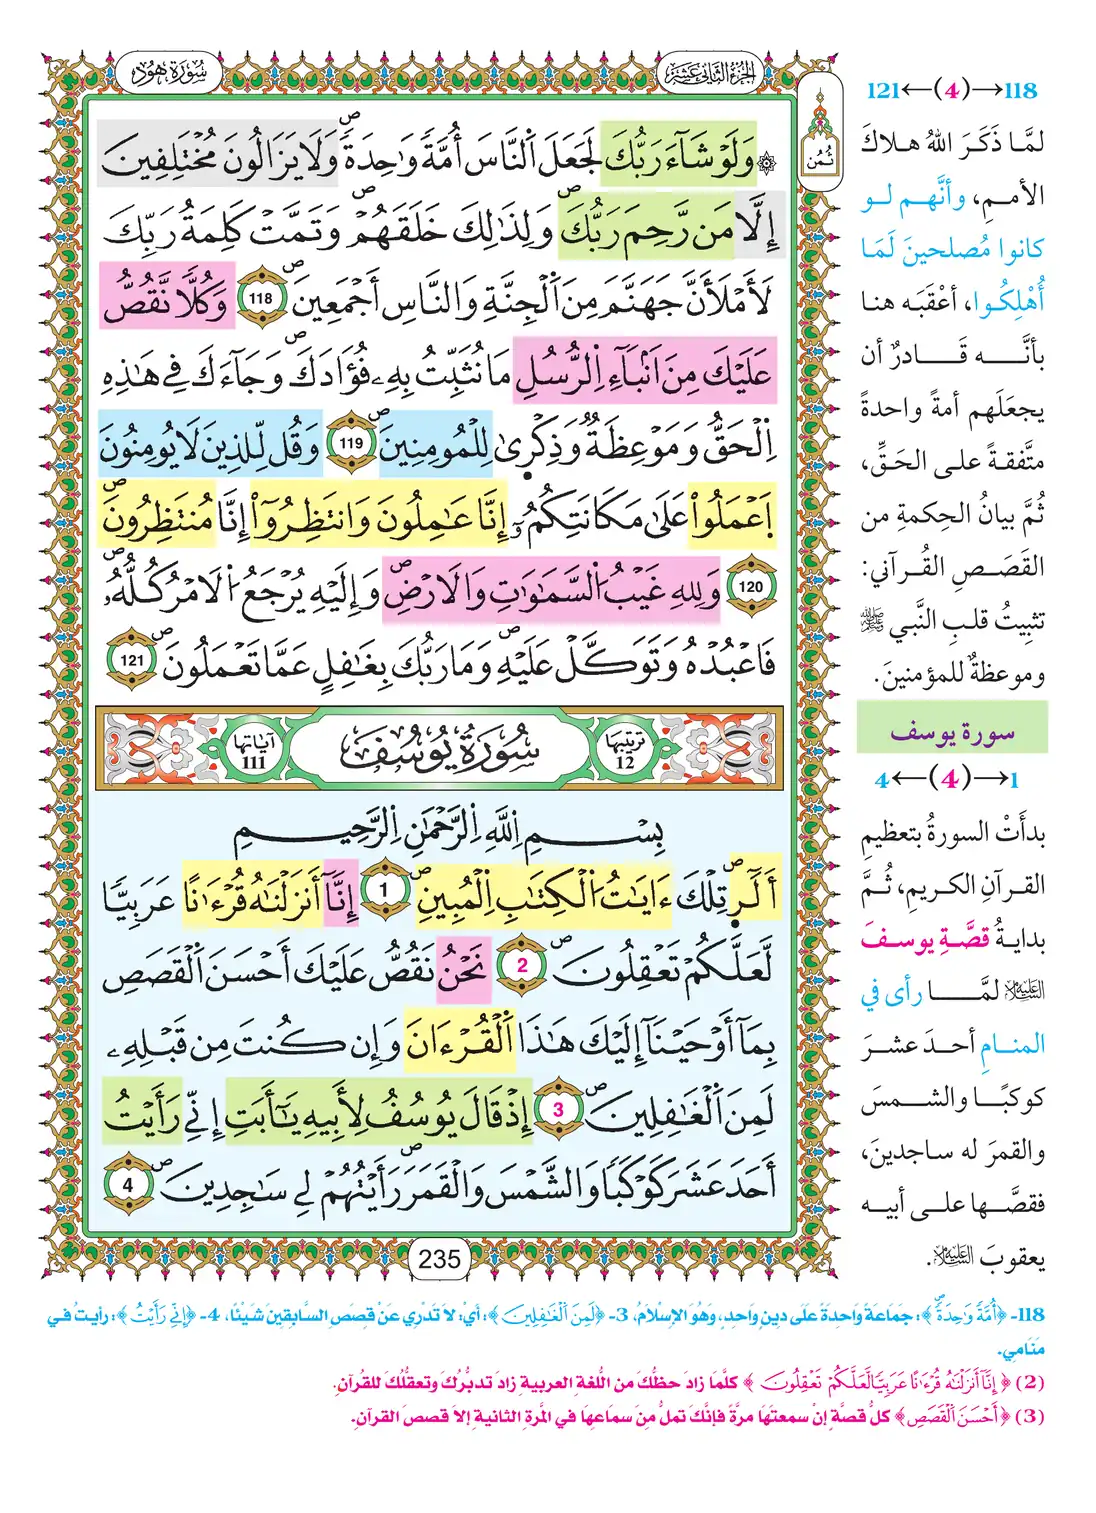 الجزء الثاني عشر
سورة هود
ثُمُن
۞ وَلَوْ شَآءَ رَبُّكَ لَجَعَلَ اَ۬لنَّاسَ أُمَّةٗ وَٰحِدَةٗۖ وَلَا يَزَالُونَ مُخْتَلِفِينَ
إِلَّا مَن رَّحِمَ رَبُّكَۖ وَلِذَٰلِكَ خَلَقَهُمْۖ وَتَمَّتْ كَلِمَةُ رَبِّكَ
لَأَمْلَأَنَّ جَهَنَّمَ مِنَ اَ۬لْجِنَّةِ وَالنَّاسِ أَجْمَعِينَۖ 118 وَكُلّٗا نَّقُصُّ
عَلَيْكَ مِنْ أَنۢبَآءِ اِ۬لرُّسُلِ مَا نُثَبِّتُ بِهِۦ فُؤَادَكَۖ وَجَآءَكَ فِي هَٰذِهِ
اِ۬لْحَقُّ وَمَوْعِظَةٞ وَذِكْر۪يٰ لِلْمُومِنِينَۖ 119 وَقُل لِّلذِينَ لَا يُومِنُونَ
اَ۪عْمَلُواْ عَلَىٰ مَكَانَتِكُمُۥٓ إِنَّا عَٰمِلُونَ وَانتَظِرُوٓاْ إِنَّا مُنتَظِرُونَۖ
120 وَلِلهِ غَيْبُ اُ۬لسَّمَٰوَٰتِ وَالَارْضِۖ وَإِلَيْهِ يُرْجَعُ اُ۬لَامْرُ كُلُّهُۥ
فَاعْبُدْهُ وَتَوَكَّلْ عَلَيْهِۖ وَمَا رَبُّكَ بِغَٰفِلٍ عَمَّا تَعْمَلُونَۖ 121
ترتيبها 12 سُورَةُ يُوسُفَ آياتها 111
بِسْمِ اِ۬للَّهِ اِ۬لرَّحْمَٰنِ اِ۬لرَّحِيمِ
أَلَٓر۪ۖ تِلْكَ ءَايَٰتُ اُ۬لْكِتَٰبِ اِ۬لْمُبِينِۖ 1 إِنَّآ أَنزَلْنَٰهُ قُرْءَٰناً عَرَبِيّٗا
لَّعَلَّكُمْ تَعْقِلُونَۖ 2 نَحْنُ نَقُصُّ عَلَيْكَ أَحْسَنَ اَ۬لْقَصَصِ
بِمَآ أَوْحَيْنَآ إِلَيْكَ هَٰذَا اَ۬لْقُرْءَانَ وَإِن كُنتَ مِن قَبْلِهِۦ
لَمِنَ اَ۬لْغَٰفِلِينَۖ 3 إِذْ قَالَ يُوسُفُ لِأَبِيهِ يَٰٓأَبَتِ إِنِّي رَأَيْتُ
أَحَدَ عَشَرَ كَوْكَباٗ وَالشَّمْسَ وَالْقَمَرَۖ رَأَيْتُهُمْ لِي سَٰجِدِينَۖ 4
235
118→(4)←121
لمَّا ذَكَرَ اللهُ هلاكَ
الأممِ، وأنَّهم لو
كانوا مُصلحينَ لَمَا
أُهْلِكُوا، أعْقَبَه هنا
بأنَّه قَادرٌ أن
يجعلَهم أمةً واحدةً
متَّفقةً على الحَقِّ،
ثُمَّ بيانُ الحِكمةِ من
القَصَصِ القُرآني:
تثبيتُ قلبِ النَّبي ﷺ
وموعظةٌ للمؤمنينَ.
سورة يوسف
1→(4)←4
بدأَتْ السورةُ بتعظيمِ
القرآنِ الكريمِ، ثُمَّ
بدايةُ قصَّةِ يوسفَ
عليه السلام لمَّا رأى في
المنامِ أحدَ عشرَ
كوكبًا والشمسَ
والقمرَ له ساجدينَ،
فقصَّها على أبيه
يعقوبَ عليه السلام.
118- ﴿أُمَّةٗ وَٰحِدَةٗۖ﴾: جَمَاعَةً وَاحِدَةً عَلَى دِينٍ وَاحِدٍ، وَهُوَ الإِسْلَامُ، 3- ﴿لَمِنَ اَ۬لْغَٰفِلِينَ﴾: أيْ: لا تَدْرِي عَنْ قِصَصِ السَّابِقِينَ شَيْئًا، 4- ﴿إِنِّي رَأَيْتُ﴾: رأيتُ في
مَنَامي.
(2) ﴿إِنَّآ أَنزَلْنَٰهُ قُرْءَٰناً عَرَبِيّٗا لَّعَلَّكُمْ تَعْقِلُونَ﴾ كلَّمَا زادَ حظُّكَ من اللُّغةِ العربيةِ زادَ تدبُّرُكَ وتعقُّلُكَ للقُرآنِ.
(3) ﴿أَحْسَنَ اَ۬لْقَصَصِ﴾ كلُّ قصَّةٍ إنْ سمعتَهَا مرَّةً فإنَّكَ تملُّ منَ سماعِها في المَّرةِ الثانيةِ إلا قصصَ القرآنِ.